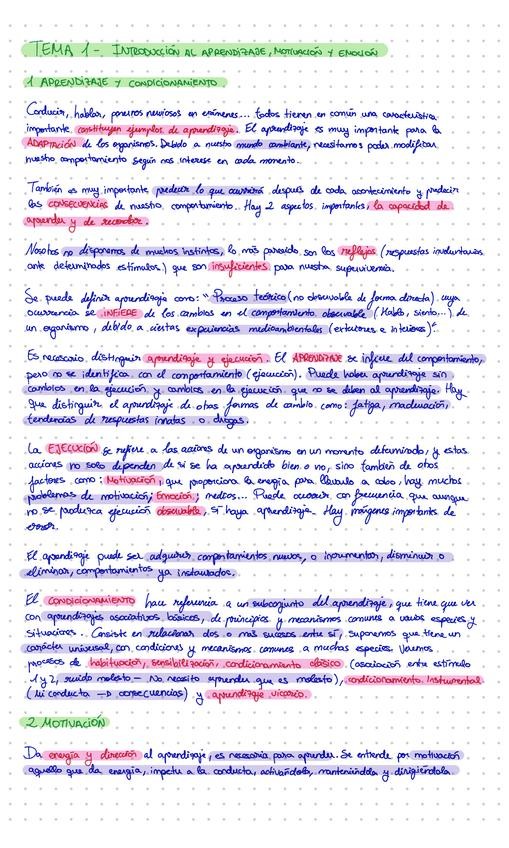 TEMA 1 - INTRODUCCIÓN AL APRENDIZAJE, MOTIVACIÓN Y EMOCIÓN
1 APRENDIZAJE Y CONDICIONAMIENTO
Conducir, hablar, ponernos nerviosos en exámenes... todos tienen en común una característica
importante: constituyen ejemplos de aprendizaje. El aprendizaje es muy importante para la
ADAPTACIÓN de los organismos. Debido a nuestro mundo cambiante, necesitamos poder modificar
nuestro comportamiento según nos interese en cada momento.
También es muy importante predecir lo que ocurrirá después de cada acontecimiento y predecir
las CONSECUENCIAS de nuestro comportamiento. Hay 2 aspectos importantes, la capacidad de
aprender y de recordar.
Nosotros no disponemos de muchos instintos, lo más parecido son los reflejos (respuestas involuntarias
ante determinados estímulos) que son insuficientes para nuestra supervivencia.
Se puede definir aprendizaje como: "Proceso teórico (no observable de forma directa) cuya
ocurrencia se INFIERE de los cambios en el comportamiento observable (Hablo, siento...) de
un organismo, debido a ciertas experiencias medioambientales (exteriores e interiores)".
Es necesario distinguir aprendizaje y ejecución. El APRENDIZAJE se infiere del comportamiento,
pero no se identifica con el comportamiento (ejecución). Puede haber aprendizaje sin
cambios en la ejecución y cambios en la ejecución que no se deben al aprendizaje. Hay
que distinguir el aprendizaje de otras formas de cambio como: fatiga, maduración,
tendencias de respuestas innatas o drogas.
La EJECUCIÓN se refiere a las acciones de un organismo en un momento determinado, y estas
acciones no solo dependen de si se ha aprendido bien o no, sino también de otros
factores como: Motivación, que proporciona la energía para llevarlo a cabo, hay muchos
problemas de motivación; Emoción; medios... Puede ocurrir con frecuencia que aunque
no se produzca ejecución observable, sí haya aprendizaje. Hay márgenes importantes de
error.
El aprendizaje puede ser adquirir comportamientos nuevos, o incrementar, disminuir o
eliminar, comportamientos ya instaurados.
El CONDICIONAMIENTO hace referencia a un subconjunto del aprendizaje, que tiene que ver
con aprendizajes asociativos básicos, de principios y mecanismos comunes a varias especies y
situaciones... Consiste en relacionar dos o más sucesos entre sí, suponemos que tiene un
carácter universal, con condiciones y mecanismos comunes a muchas especies. Veremos
procesos de habituación, sensibilización, condicionamiento clásico (asociación entre estímulo
1 y 2, ruido molesto - No necesito aprender que es molesto), condicionamiento Instrumental
(mi conducta → consecuencias) y aprendizaje vicario.
2 MOTIVACIÓN
Da energía y dirección al aprendizaje, es necesaria para aprender. Se entiende por motivación
aquello que da energía, ímpetu a la conducta, activándola, manteniéndola y dirigiéndola.